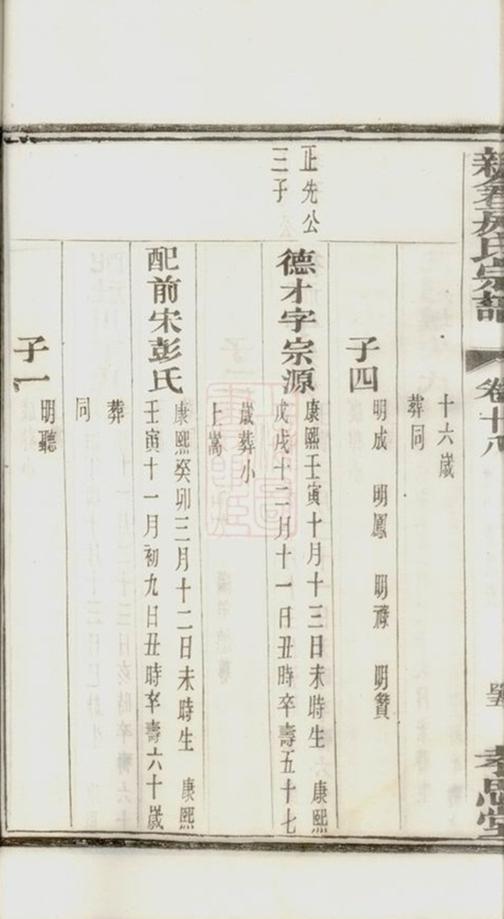 氏宗譜
卷十八
孝思堂
十六歲
葬同
子四
明成 明鳳 明祿 明贊
正先公
三子
德才字宗源
康熙壬寅十月十三日未時生 康熙
戊戌十二月十一日丑時卒壽五十七
歲葬小
上嵩
配前宋彭氏
康熙癸卯三月十二日未時生 康熙
壬寅十一月初九日丑時卒壽六十歲
葬
同
子一
明聽